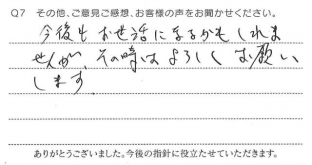 Q7 その他、ご意見ご感想、お客様の声をお聞かせください。
今後も お世話になるかもしれま
せんが、その時は よろしく お願い
します
ありがとうございました。今後の指針に役立たせていただきます。